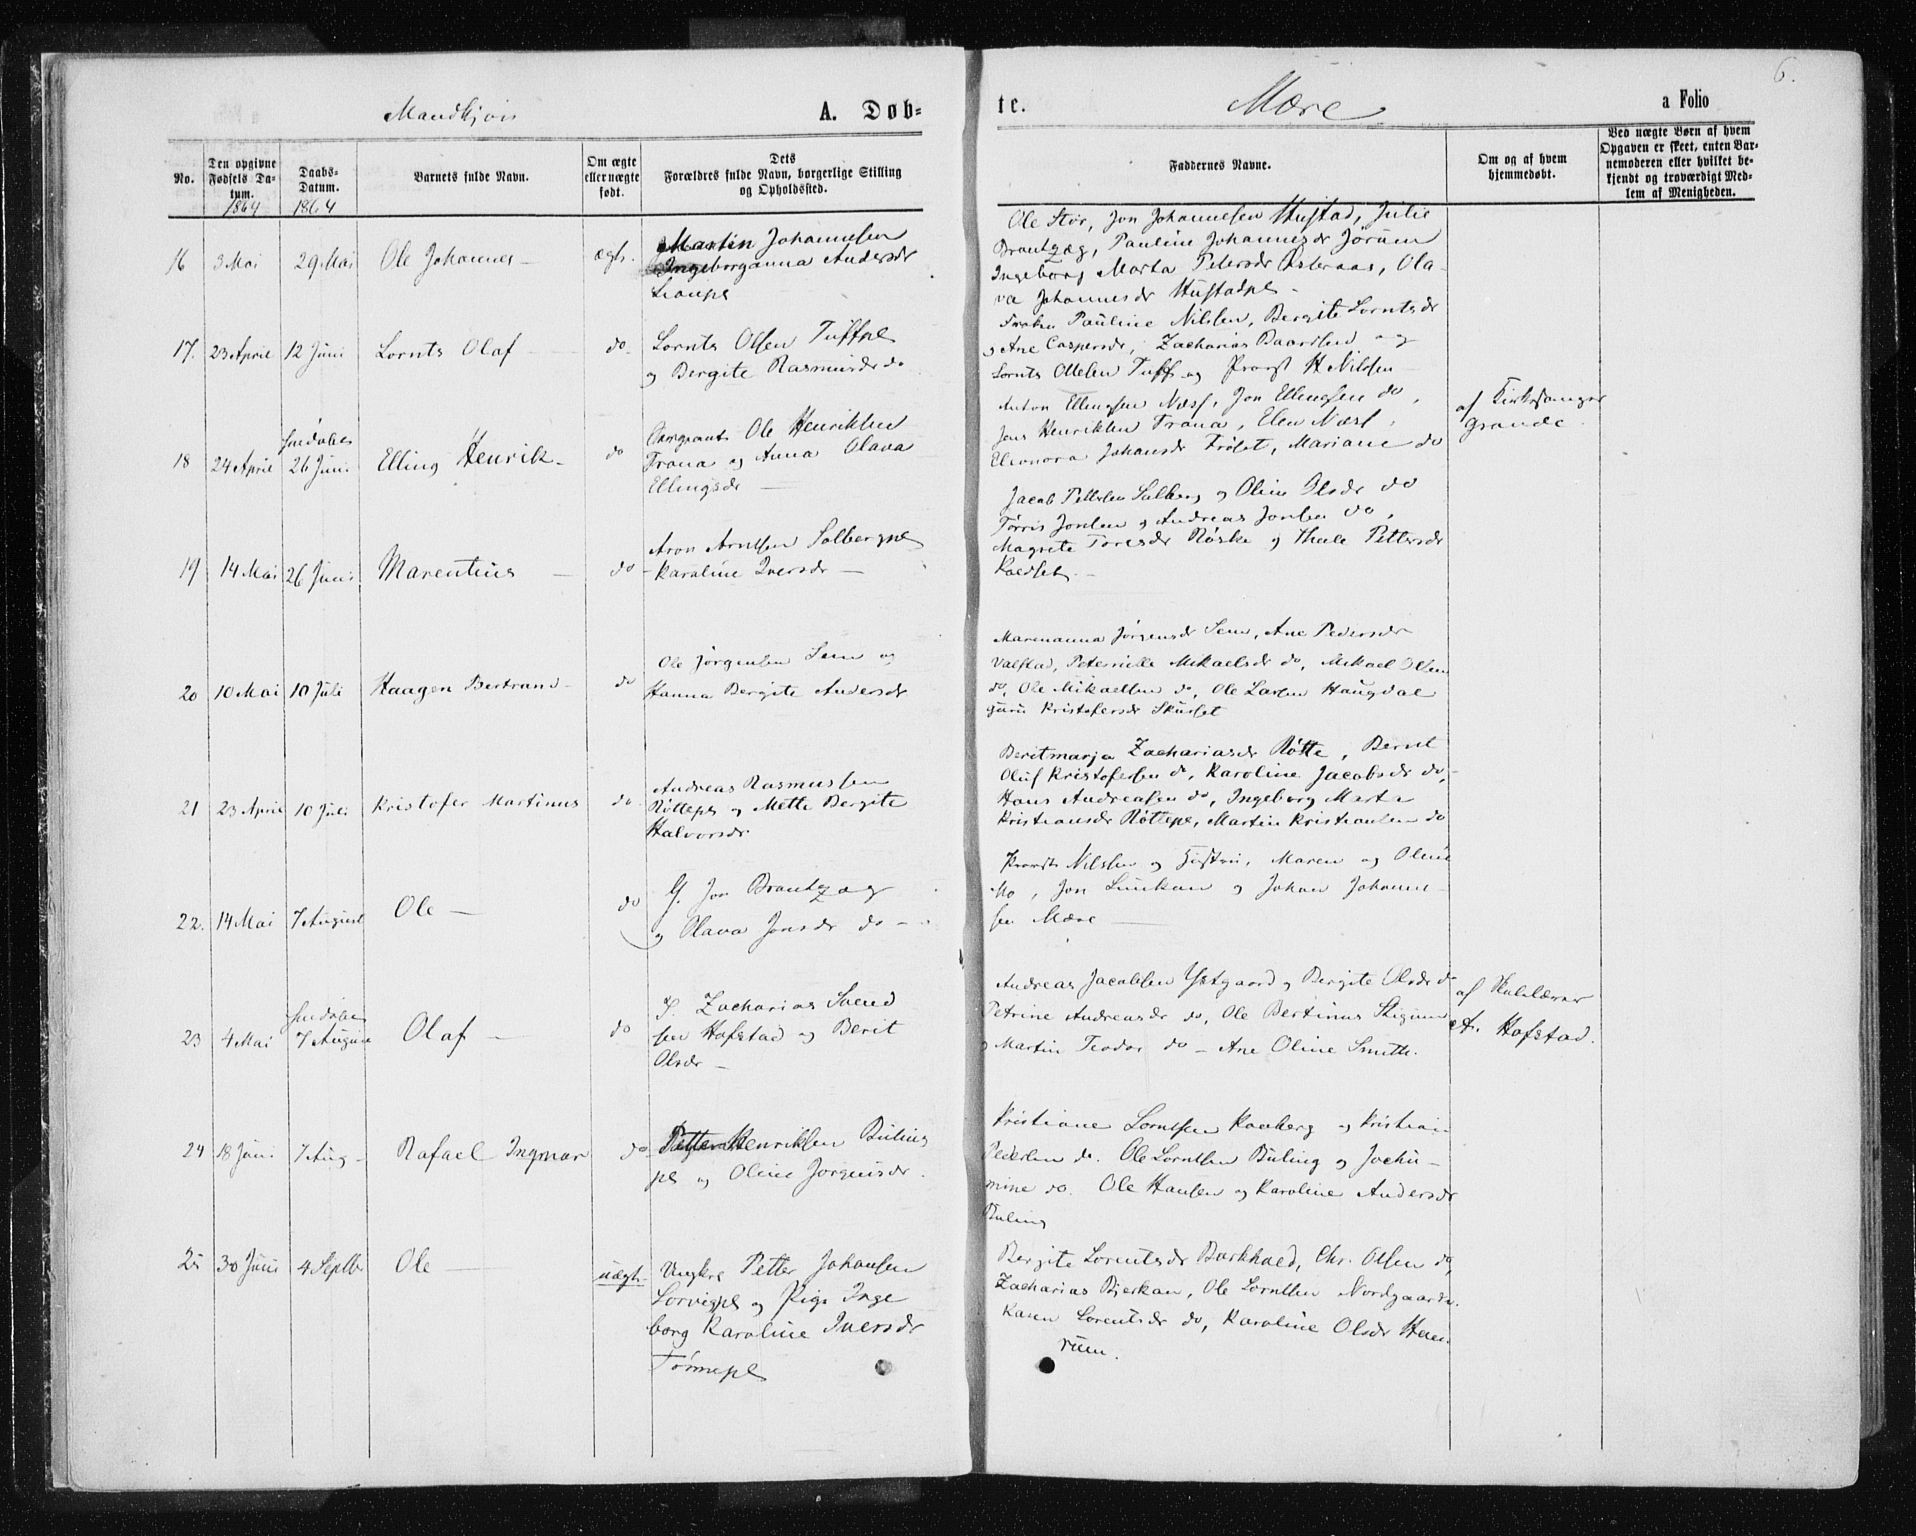 6.
Mandkjøn A. Døb=
te. Mære a Folio
No.
Den opgivne
Fødsels Da-
tum.
1864
Daabs-
Datum.
1864
Barnets fulde Navn.
Om ægte
eller uægte
født.
Dets
Forældres fulde Navn, borgerlige Stilling
og Opholdssted.
Faddernes Navne.
Om og af hvem
hjemmedøbt.
Ved uægte Børn af hvem
Opgaven er skeet, enten Bar-
nemoderen eller hvilket be-
kjendt og troværdigt Med-
lem af Menigheden.
16 3 Mai 29 Mai Ole Johannes — ægt.
Martin Johannesen
Ingeborganna Andersdr
Ole Stor, Jon Johannesen Hustad, Julie
Brantzæg, Pauline Johannesdr Jørum
Ingeborg Marta Petersdr Østeraas, Ola-
va Johannesdr Hustadpl —
17. 23 April 12 Juni Lornts Olaf — do
Lornts Olsen Tuffpl
og Bergite Rasmusdr do
Frøken Pauline Nilssen, Bergite Lorntsdr
og Ane Caspersdr, Zacharias Baardsen og
Lornts Olelsen Tuff og Provst H Nilssen
18 24 April 26 Juni Elling Henrik — do
Ole Henriksen
Trana og Anna Olava
Ellingsdr —
Anton Ellingsen Næss, Jon Ellingsen do,
Jens Henriksen Trana, Elen Næss,
Eleonora Johansdr Frøset, Mariane do
af Kirkesanger
Grande.
19 14 Mai 26 Juni Marentius — do
Aron Arntsen Solbergpl
Karoline Iversdr —
Jacob Pettersen Solberg og Oline Olsdr do
Tørris Jonsen og Andreas Jonsen do,
Magrete Toresdr Røske og Petersdr
Koldset. —
20 10 Mai 10 Juli Haagen Bertrand — do
Ole Jørgensen Sem og
Hanna Bergite Andersdr
Marenanna Jørgensdr Sem, Ane Pedersdr
Valstad, Peternille Mikaelsdr do, Mikael Olsen
do, Ole Mikaelsen do, Ole Larsen Haugdal
Guru Kristofersdr Skurset
21 23 April 10 Juli Kristofer Martinus do
Andreas Rasmussen
Røttepl og Mette Bergite
Halvorsdr
Beritmarja Zachariasdr Røtte, Bernt
Oluf Kristofersen do, Karoline Jacobsdr do,
Hans Andreasen do, Ingeborg Marta
Kristiansdr Røttepl, Martin Kristiansen do
22. 14 Mai 7 August Ole — do
G. Jon Brantzæg
og Olava Jonsdr do —
Provst Nilssen og Hustru, Maren og Oline
Mo, Jon og Johan Johanne-
sen Mære —
23 4 Mai 7 August Olaf — do
Zacharias Svend
sen Hofstad og Berit
Olsdr —
Andreas Jacobsen Ystgaard og Bergite Olsdr do
Petrine Andreasdr do, Ole Bertinus Stigum
og Martin Teodor do — Ane Oline Smith.
af Skolelærer
A. Hofstad.
24 18 Juni 7 Aug — Rafael Ingmar do
Petter Henriksen Buling
pl og Oline Jørgensdr.
Kristiane Lorntsen Kaaberg og Kristian
Pedersen do. Ole Lorntsen Buling og Jochu-
mine do. Ole Hansen og Karoline Andersdr
Buling
25 30 Juni 4 Septbr Ole — uægt.
Ungkrl Petter Johansen
Lorvigpl og Pige Inge
borg Karoline Iversdr
Tønnepl
Bergite Lorentsdr Barkhald, Chr. Olsen do,
Zacharias Bjerkan, Ole Lorntsen Nordgaard.
Karen Lorentsdr do, Karoline Olsdr Heen-
rum.